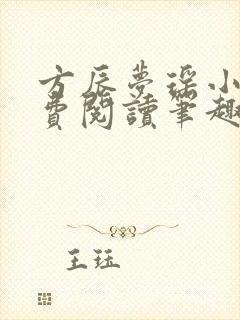 方辰梦瑶小
费阅读笔趣
王珏